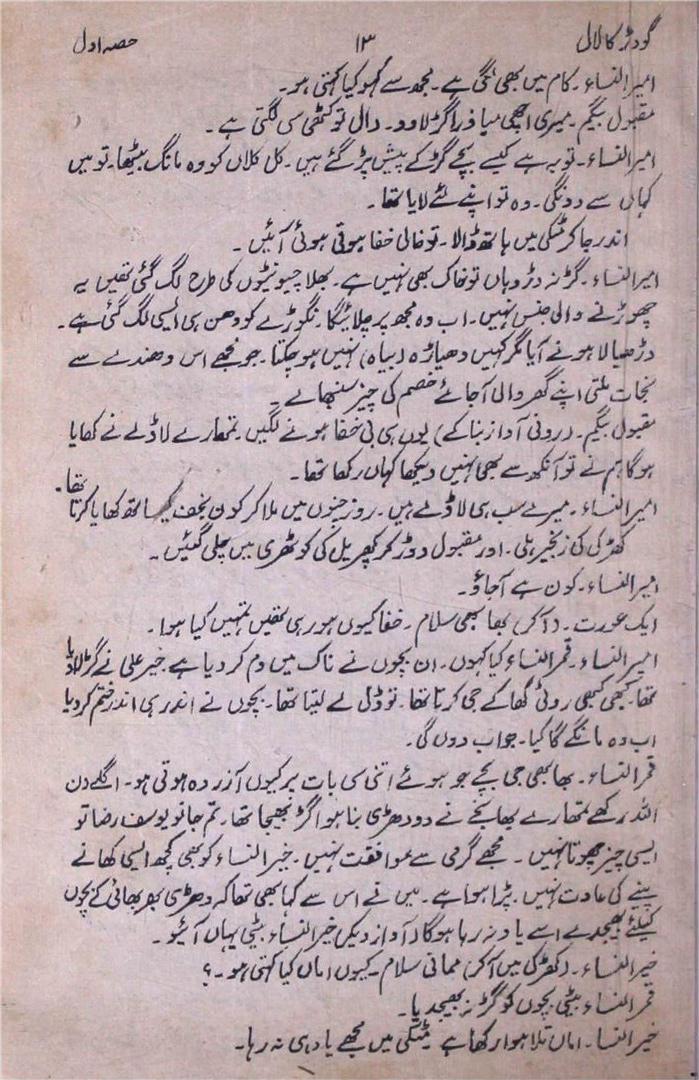 گودڑ کا لال ۱۳ حصہ اول
امیر النساء۔ کام میں بھی لگی ہے۔ مجھ سے کہو کیا کہتی ہو۔
مقبول بیگم۔ میری اچھی میا ذرا گڑ لادو۔ دال تو کھٹی سی لگتی ہے۔
امیر النساء۔ توبہ ہے کیسے بچے گڑ کے پیش پڑ گئے ہیں۔ کل کلاں کو وہ مانگ بیٹھا۔ تو میں
کہاں سے دونگی۔ وہ تو اپنے لئے لایا تھا۔
اندر جا کر مٹکی میں ہاتھ ڈالا۔ تو خالی خفا ہوتی ہوئی آئیں۔
امیر النساء۔ گڑ نہ دڑ وہاں تو خاک بھی نہیں ہے۔ بھلا چیونٹیوں کی طرح لگ گئی تھیں یہ
چھوڑنے والی جنس نہیں۔ اب وہ مجھ پر چلائیگا۔ نگوڑے کو دھن ہی ایسی لگ گئی ہے۔
دڑھیالا ہونے آیا مگر کہیں دھیاڑہ (بیاہ) نہیں ہو چکتا۔ جو مجھے اس دھندے سے
نجات ملتی اپنے گھر والی آجائے خصم کی چیز سنبھالے۔
مقبول بیگم۔ (رونی آواز بنا کے) یوں ہی بی خفا ہونے لگیں تمہارے لاڈلے نے کھایا
ہوگا ہم نے تو آنکھ سے بھی نہیں دیکھا کہاں رکھا تھا۔
امیر النساء۔ میرے سب ہی لاڈلے ہیں۔ روز چنوں میں ملا کر کون نجف کے ساتھ کھایا کرتا تھا۔
کھڑکی کی زنجیر ہلی۔ اور مقبول دوڑ کر کھپریل کی کوٹھری میں چلی گئیں۔
امیر النساء۔ کون ہے آجاؤ۔
ایک عورت۔ (آکر) بھابھی سلام۔ خفا کیوں ہو رہی تھیں تمہیں کیا ہوا۔
امیر النساء۔ قمر النساء کیا کہوں۔ ان بچوں نے ناک میں دم کر دیا ہے خیر علی نے گڑ لا دیا
تھا۔ کبھی کبھی روٹی کھا کے جی کرتا تھا۔ تو ڈل لے لیتا تھا۔ بچوں نے اندر ہی اندر ختم کر دیا
اب وہ مانگے گا کیا۔ جواب دوں گی۔
قمر النساء۔ بھابھی جی بچے جو ہوئے اتنی سی بات پر کیوں آزردہ ہوتی ہو۔ اگلے دن
اللہ رکھے تمہارے بھانجے نے دو دھڑی بنا ہوا گڑ بھیجا تھا۔ تم جانو یوسف رضا تو
ایسی چیز چھوتا نہیں۔ مجھے گرمی سے موافقت نہیں۔ خیر النساء کو بھی کچھ ایسی کھانے
پینے کی عادت نہیں۔ پڑا ہوا ہے۔ میں نے اس سے کہا بھی تھا کہ دھڑی بھر بھائی کے بچوں
کیلئے بھیجدے اسے یاد نہ رہا ہوگا (آواز دیکر) خیر النساء بیٹی یہاں آئیو۔
خیر النساء۔ (کھڑکی میں آکر) ممانی سلام۔ کیوں اماں کیا کہتی ہو۔؟
قمر النساء بیٹی بچوں کو گڑ نہ بھیجدیا۔
خیر النسا۔ اماں تلا ہوا رکھا ہے مٹکی میں مجھے یاد ہی نہ رہا۔